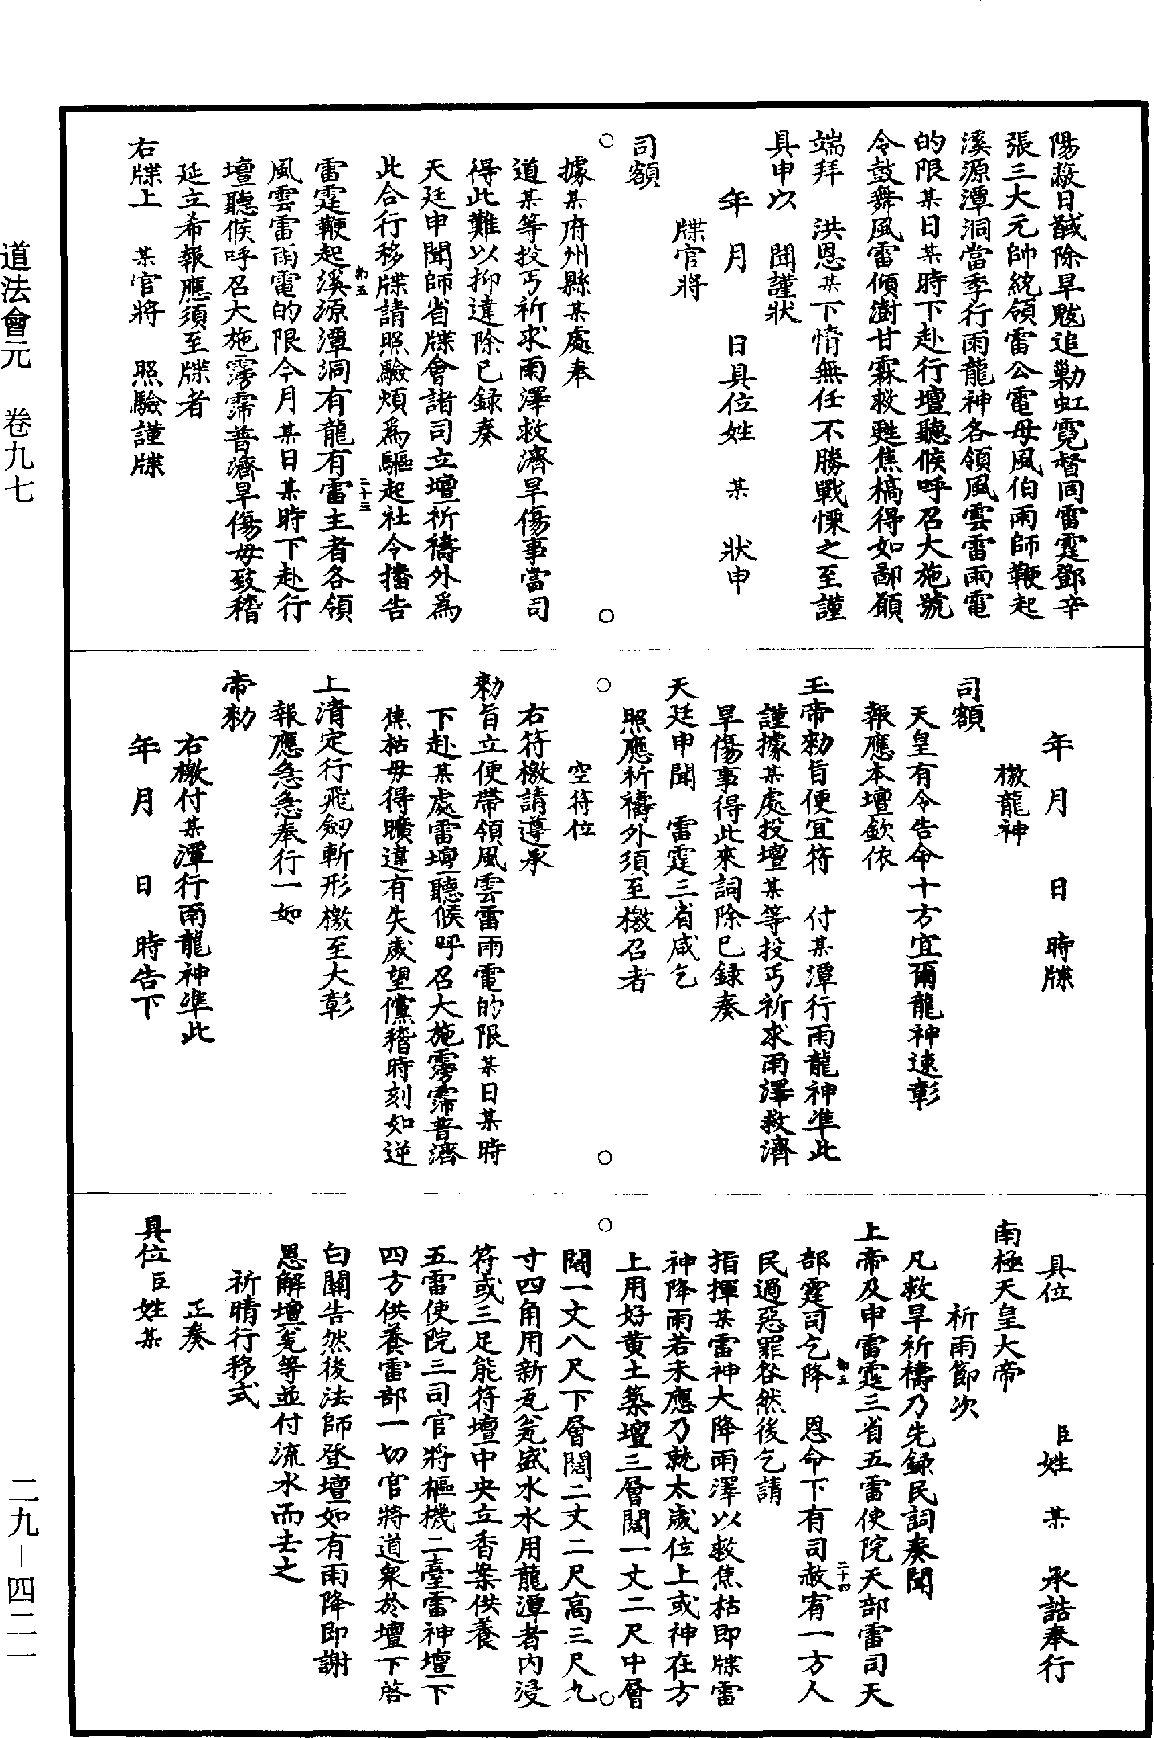 道法會元　卷九七
二九－四二一
陽赦日馘除旱魃追勦虹霓督同雷霆鄧辛
張三大元帥統領雷公電母風伯雨師鞭起
溪源潭洞當季行雨龍神各領風雲雷雨電
的限某日某時下赴行壇聽候呼召大施號
令鼓舞風雷傾澍甘霖救甦焦槁得如鄙願
端拜　洪恩某下情無任不勝戰慄之至謹
具申以　聞謹狀
年　月　　日具位姓　某　狀申
牒官將
司額
據某府州縣某處奉
道某等投丐祈求雨澤救濟旱傷事當司
得此難以抑違除已録奏
天廷申聞師省牒會諸司立壇祈禱外爲
此合行移牒請照驗煩爲驅起社令播告
雷霆鞭起溪源潭洞有龍有雷主者各領
風雲雷雨電的限今月某日某時下赴行
壇聽候呼召大施霶霈普濟旱傷毋致稽
延立希報應須至牒者
右牒上　某官將　照驗謹牒
年　月　　日　時牒
檄龍神
司額
天皇有令告命十方宜爾龍神速彰
報應本壇欽依
玉帝勑旨便宜符　付某潭行雨龍神準此
謹據某處投壇某等投丐祈求雨澤救濟
旱傷事得此來詞除已録奏
天廷申聞　雷霆三省咸乞
照應祈禱外須至檄召者
空符位
右符檄請遵承
勑旨立便帶領風雲雷雨電的限某日某時
下赴某處雷壇聽候呼召大施霶霈普濟
焦枯毋得曠違有失歲望儻稽時刻如逆
上清定行飛劒斬形檄至大彰
報應急急奉行一如
帝勑
右檄付某潭行雨龍神準此
年　月　　日　時告下
具位　　　臣姓　某　承誥奉行
南極天皇大帝
祈雨節次
凡救旱祈禱乃先録民詞奏聞
上帝及申雷霆三省五雷使院天部雷司天
部霆司乞降　恩命下有司赦宥一方人
民過惡罪咎然後乞請
指揮某雷神大降雨澤以救焦枯即牒雷
神降雨若未應乃就太歲位上或神在方
上用好黃土築壇三層闊一丈二尺中層
闊一丈八尺下層闊二丈二尺高三尺九
寸四角用新瓦瓮盛水水用龍潭者內浸
符或三足能符壇中央立香案供養
五雷使院三司官將樞機二臺雷神壇下
四方供養雷部一切官將道衆於壇下啓
白關告然後法師登壇如有雨降即謝
恩解壇瓮等並付流水而去之
祈晴行移式
正奏
具位臣姓某